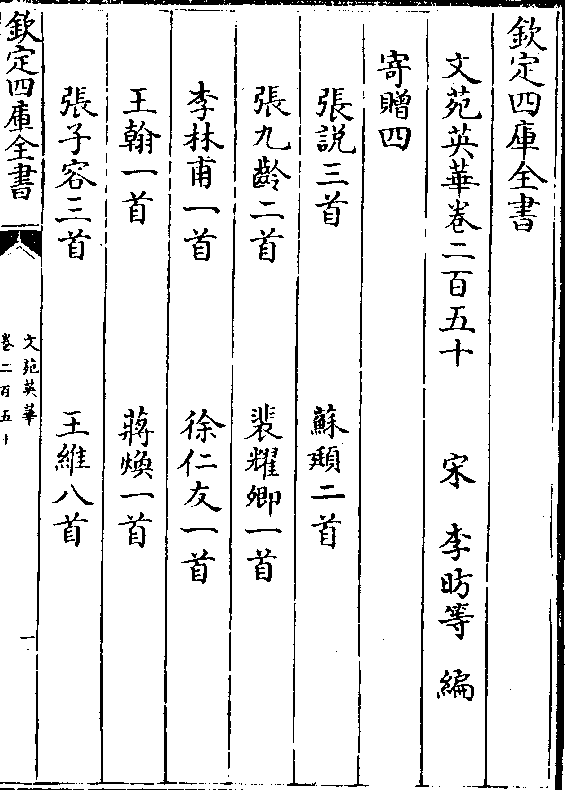 欽定四庫全書
文苑英華卷二百五十　宋　李昉等　編
寄贈四
張說三首　蘇頲二首
張九齡二首　裴耀卿一首
李林甫一首　徐仁友一首
王翰一首　蔣煥一首
張子容三首　王維八首
欽定四庫全書　文苑英華　卷二百五十　一